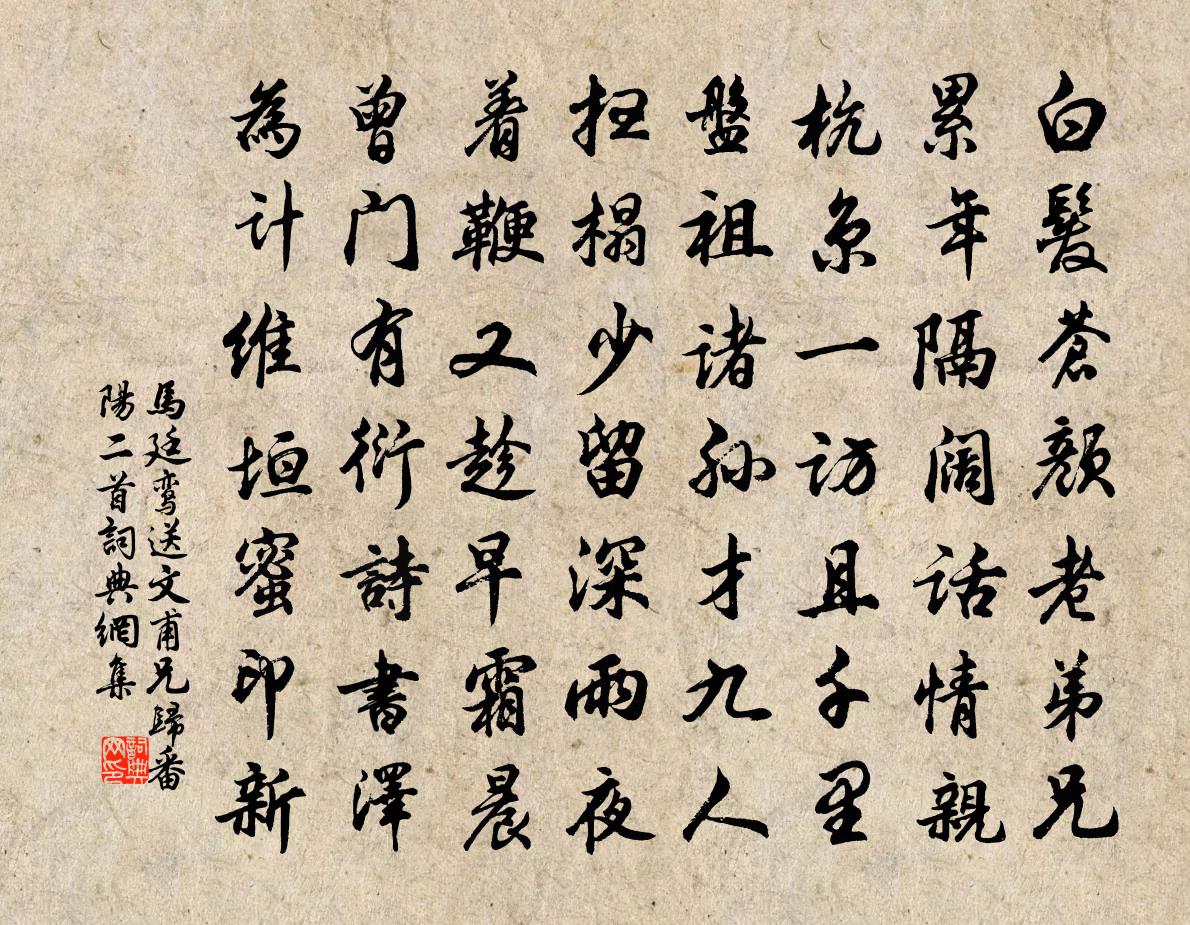 白髮蒼顏老弟兄
累年隔阔话情親
杭京一访且千里
盤祖诸孙才九人
扫榻少留深雨夜
着鞭又趁早霜晨
曾门有衍詩書澤
為计维垣蜜印新
馬廷鸾送文甫兄歸番
陽二首詞典網集
詞典网印